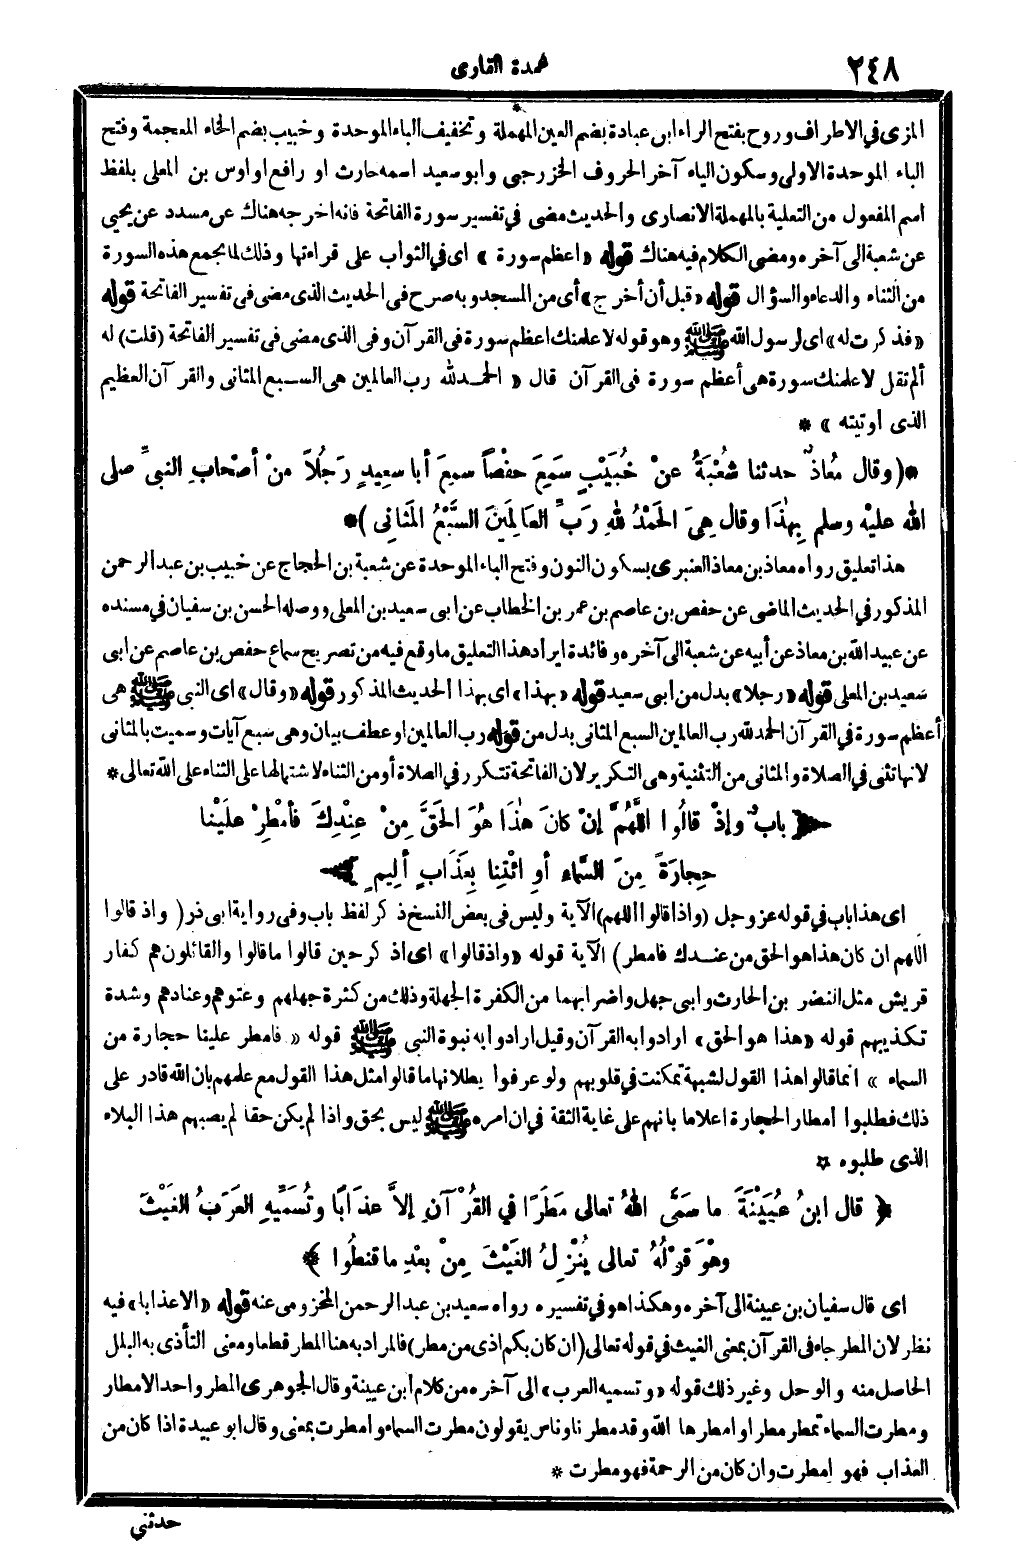 ٢٤٨ عمدة القارى
المزى فى الاطراف وروح بفتح الراء ابن عبادة بضم العين المهملة وتخفيف الباء الموحدة وخبيب بضم الخاء المعجمة وفتح
الباء الموحدة الاولى وسكون الياء آخر الحروف الخزرجى وابو سعيد اسمه حارث او رافع او اوس بن المعلى بلفظ
اسم المفعول من التعلية بالمهملة الانصارى والحديث مضى فى تفسير سورة الفاتحة فانه اخرجه هناك عن مسدد عن يحيى
عن شعبة الى آخره ومضى الكلام فيه هناك قوله «اعظم سورة» اى فى الثواب على قراءتها وذلك لما يجمع هذه السورة
من الثناء والدعاء والسؤال قوله «قبل أن أخرج» أى من المسجد وبه صرح فى الحديث الذى مضى فى تفسير الفاتحة قوله
«فذكرت له» اى لرسول الله ﷺ وهو قوله لاعلمنك اعظم سورة فى القرآن وفى الذى مضى فى تفسير الفاتحة (قلت) له
ألم تقل لاعلمنك سورة هى أعظم سورة فى القرآن قال « الحمد لله رب العالمين هى السبع المثانى والقرآن العظيم
الذى اوتيته » *
*(وقال مُعاذٌ حدثنا شُعْبَةُ عنْ خُبَيْبٍ سَمِعَ حفْصاً سمِعَ أبا سعِيدٍ رَجُلاً منْ أصْحابِ النبىِّ صلى
الله عليْه وسلم بِهٰذَا وقال هِىَ الحَمْدُ للهِ رَبِّ العالمِينَ السَّبْعُ المَثانِى)*
هذا تعليق رواه معاذ بن معاذ العنبرى بسكون النون وفتح الباء الموحدة عن شعبة بن الحجاج عن خبيب بن عبد الرحمن
المذكور فى الحديث الماضى عن حفص بن عاصم بن عمر بن الخطاب عن ابى سعيد بن المعلى ووصله الحسن بن سفيان فى مسنده
عن عبيد الله بن معاذ عن أبيه عن شعبة الى آخره وفائدة ايراد هذا التعليق ما وقع فيه من تصريح سماع حفص بن عاصم عن ابى
سعيد بن المعلى قوله «رجلا» بدل من ابى سعيد قوله «بهذا» اى بهذا الحديث المذكور قوله «وقال» اى النبى ﷺ هى
أعظم سورة فى القرآن الحمد لله رب العالمين السبع المثانى بدل من قوله رب العالمين او عطف بيان وهى سبع آيات وسميت بالمثانى
لانها تثنى فى الصلاة والمثانى من التثنية وهى التكرير لان الفاتحة تتكرر فى الصلاة أو من الثناء لاشتمالها على الثناء على الله تعالى *
﴿ بابٌ وإذْ قالُوا اللَّهُمَّ إنْ كانَ هٰذَا هُوَ الحَقَّ مِنْ عِنْدِكَ فأمْطِرْ علَيْنا
حِجارَةً مِنَ السَّماءِ أوِ ائْتِنا بِعَذَابٍ ألِيمٍ ﴾
اى هذا باب فى قوله عز وجل (واذ قالوا اللهم) الآية وليس فى بعض النسخ ذكر لفظ باب وفى رواية ابى ذر ( واذ قالوا
اللهم ان كان هذا هو الحق من عندك فامطر) الآية قوله «واذ قالوا» اى اذكر حين قالوا ما قالوا والقائلون هم كفار
قريش مثل النضر بن الحارث وابى جهل واضرابهما من الكفرة الجهلة وذلك من كثرة جهلهم وعتوهم وعنادهم وشدة
تكذيبهم قوله «هذا هو الحق» ارادوا به القرآن وقيل ارادوا به نبوة النبى ﷺ قوله « فامطر علينا حجارة من
السماء » انما قالوا هذا القول لشبهة تمكنت فى قلوبهم ولو عرفوا بطلانها ما قالوا مثل هذا القول مع علمهم بان الله قادر على
ذلك فطلبوا امطار الحجارة اعلاما بانهم على غاية الثقة فى ان امره ﷺ ليس بحق واذا لم يكن حقا لم يصبهم هذا البلاء
الذى طلبوه *
﴿ قال ابنُ عُيَيْنَةَ ما سَمَّى اللهُ تعالى مَطَرًا فى القُرْآنِ إلاَّ عذَابًا وتُسَمِّيهِ العَرَبُ الغَيْثَ
وهْوَ قوْلُهُ تعالى يُنْزِلُ الغَيْثَ مِنْ بعْدِ ما قنطُوا ﴾*
اى قال سفيان بن عيينة الى آخره وهكذا هو فى تفسيره رواه سعيد بن عبد الرحمن المخزومى عنه قوله «الا عذابا» فيه
نظر لان المطر جاء فى القرآن بمعنى الغيث فى قوله تعالى (ان كان بكم اذى من مطر) فالمراد به هنا المطر قطعا ومعنى التأذى به البلل
الحاصل منه والوحل وغير ذلك قوله «وتسميه العرب» الى آخره من كلام ابن عيينة وقال الجوهرى المطر واحد الامطار
ومطرت السماء تمطر مطرا وامطرها الله وقد مطرنا وناس يقولون مطرت السماء وامطرت بمعنى وقال ابو عبيدة اذا كان من
العذاب فهو امطرت وان كان من الرحمة فهو مطرت *
حدثنى